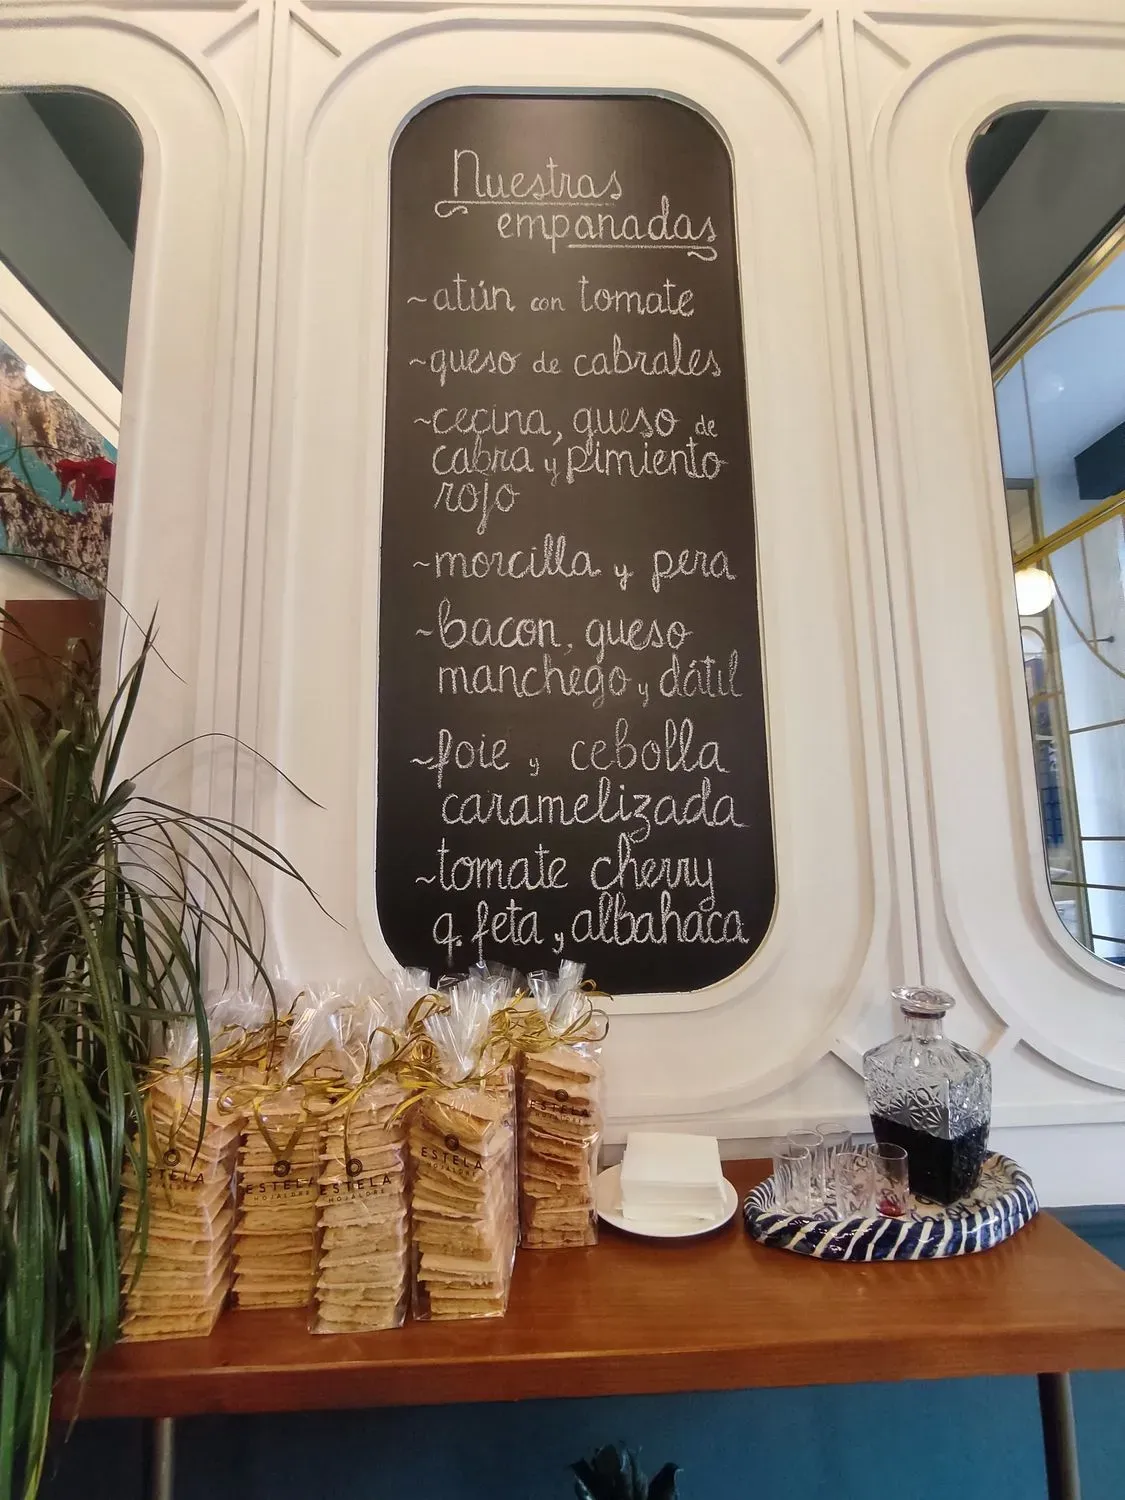 Nuestras
empanadas
~atún con tomate
~queso de cabrales
~cecina, queso de
cabra y pimiento
rojo
~morcilla y pera
~bacon, queso
manchego y dátil
~foie y cebolla
caramelizada
~tomate cherry
q. feta y albahaca
ESTELA
ESTELA
HOJALDRE
ESTELA
HOJALDRE
ESTELA
HOJALDRE
ESTELA